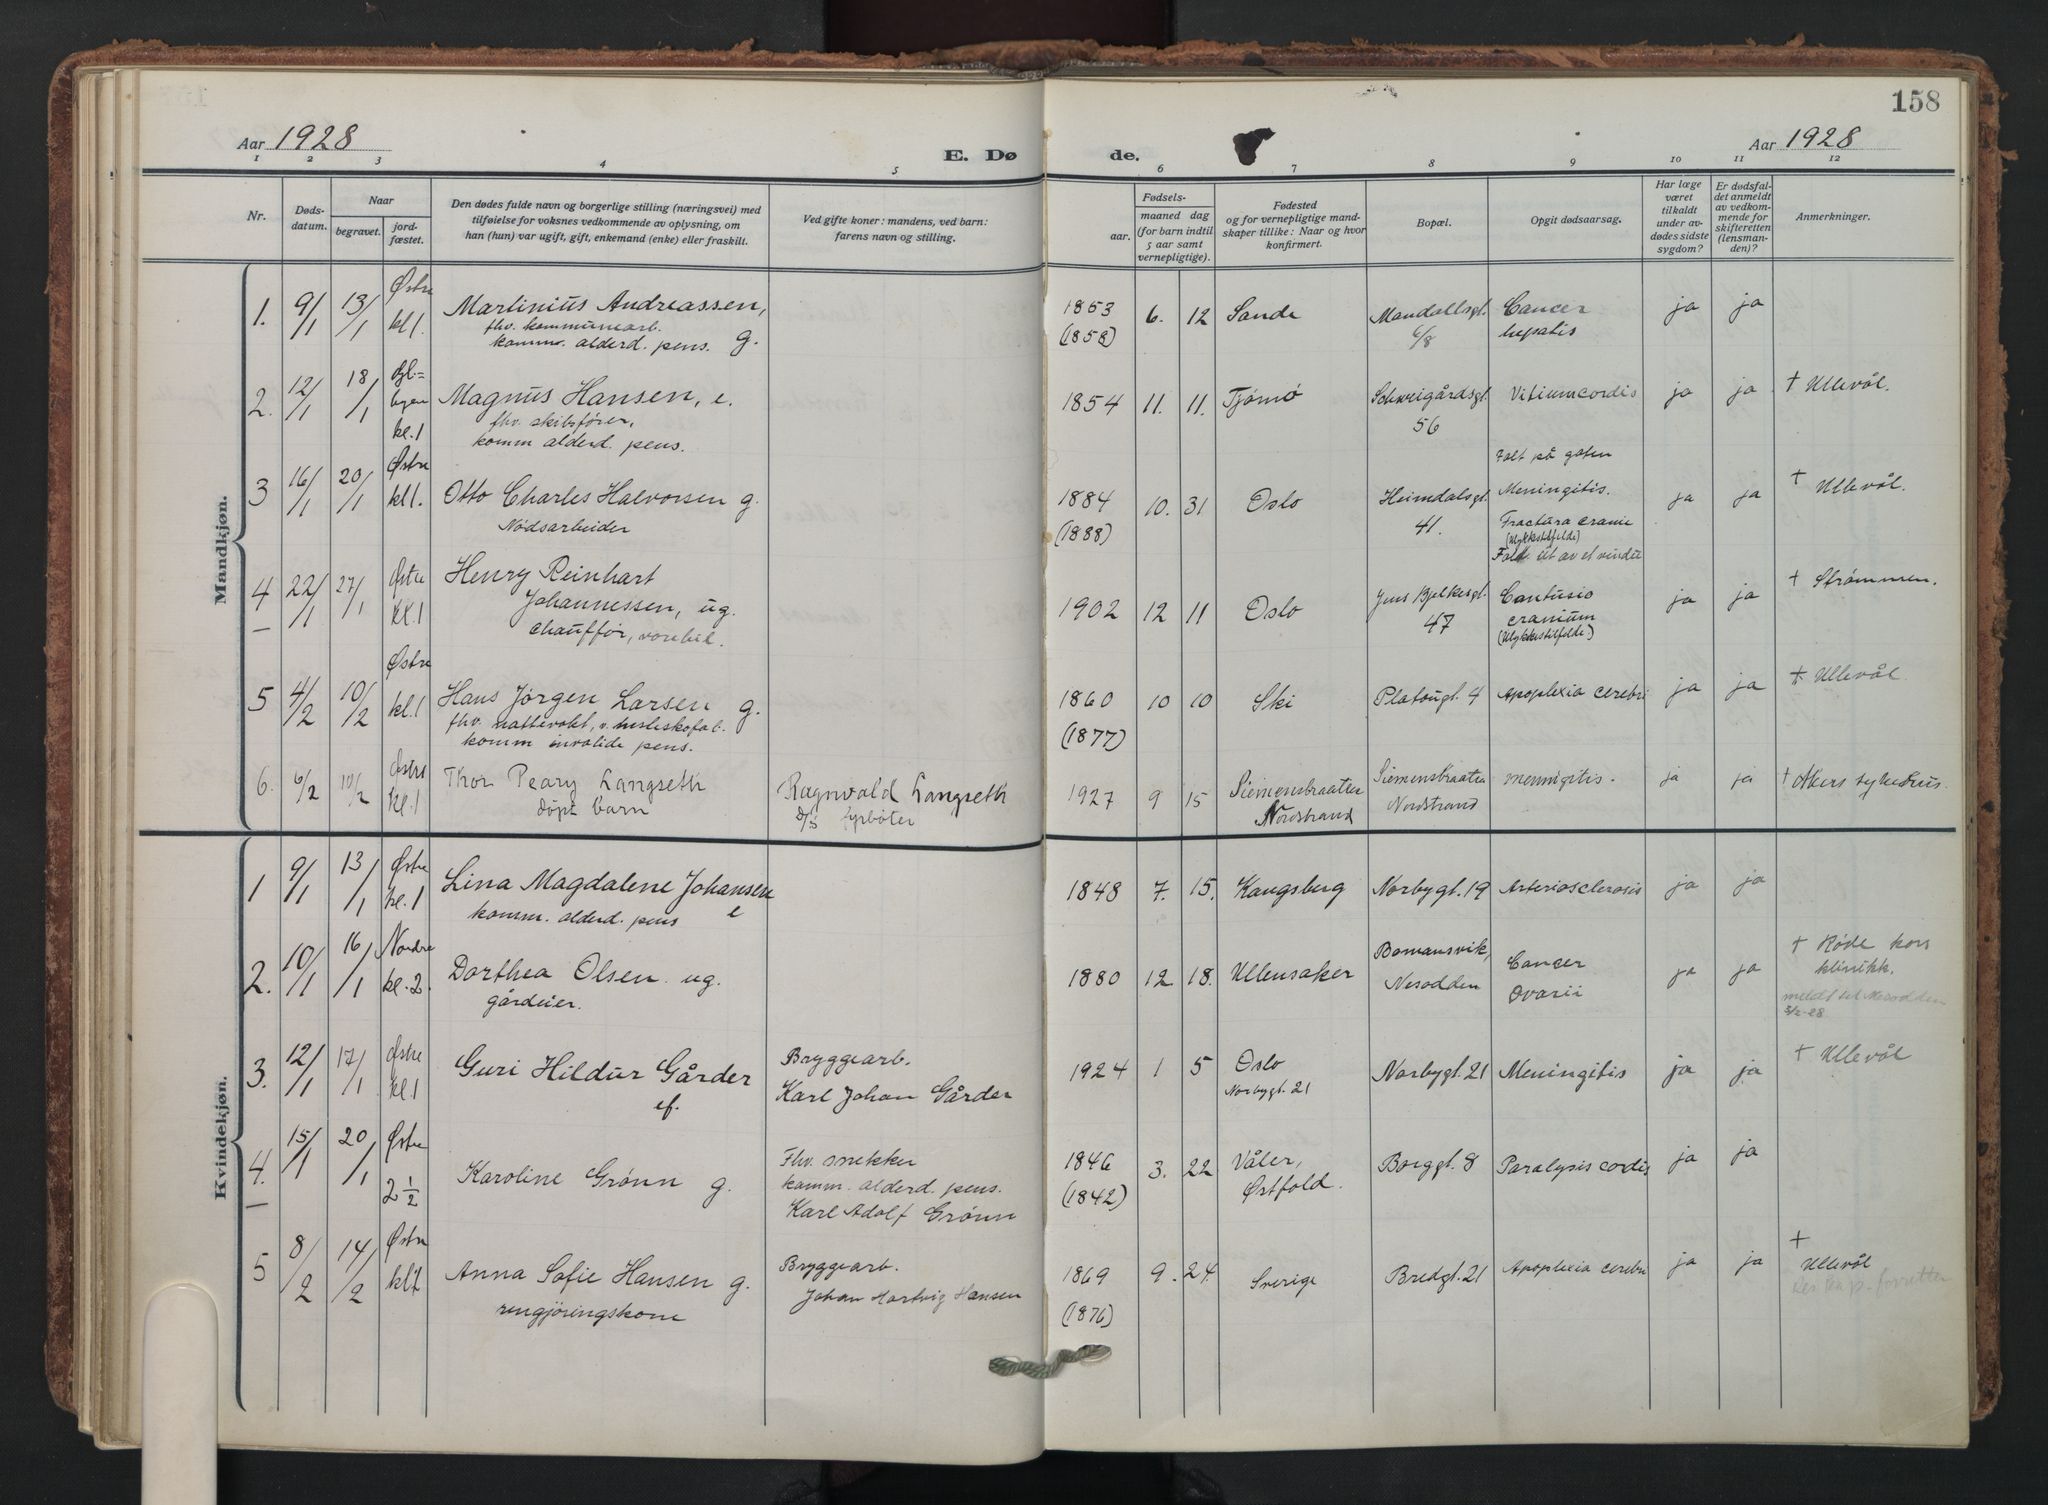 158
Aar 1928
E. Dø
de.
Aar 1928
1 2 3 4 5 6 7 8 9 10 11 12
Nr.
Døds-
datum.
Naar
begravet.
jord-
fæstet.
Den dødes fulde navn og borgerlige stilling (næringsvei) med
tilføielse for voksnes vedkommende av oplysning, om
han (hun) var ugift, gift, enkemand (enke) eller fraskilt.
Ved gifte koner: mandens, ved barn:
farens navn og stilling.
Fødsels-
aar.
maaned dag
(for barn indtil
5 aar samt
vernepligtige).
Fødested
og for vernepligtige mand-
skaper tillike: Naar og hvor
konfirmert.
Bopæl.
Opgit dødsaarsag.
Har læge
været
tilkaldt
under av-
dødes sidste
sygdom?
Er dødsfal-
det anmeldt
av vedkom-
mende for
skifteretten
(lensman-
den)?
Anmerkninger.
Mandkjøn.
1. 9/1 13/1 Østre
kl 1.
Martinius Andreassen,
fhv. kommunearb.
komm. alderd. pens. g.
1853
(1858)
6. 12 Sande
Mandallsgt.
6/8
Cancer
hepatis
ja ja
2. 12/1 18/1
kl. 1
Magnus Hansen, e.
fhv. skibsfører,
komm alderd. pens.
1854 11. 11. Tjømø
Schweigårdsgt.
56
Vitium cordis
ja ja
+ Ullevål.
3 16/1 20/1 Østre
kl 1.
Otto Charles Halvorsen g.
Nødsarbeider
1884
(1888)
10. 31 Oslo
Heimdalsgt.
41.
Falt på gaten
Meningitis.
Fractura cranie
(Ulykkestilfelde)
ja ja
+ Ullevål.
4 22/1 27/1 Østre
kl. 1
Henry Reinhart
Johannessen, ug.
chauffør,
1902 12 11 Oslo
Jens Bjelkesgt.
47
Fald ut av et vindu
Contusio
cranium
(Ulykkestilfelde)
ja ja
+ Strømmen.
5 4/2 10/2 Østre
kl. 1
Hans Jørgen Larsen g.
fhv. nattevakt,
komm invalide pens.
1860
(1877)
10 10 Ski
Platougt. 4
Apoplexia cerebri
ja ja
+ Ullevål
6. 6/2 10/2 Østre
kl. 1
Thor Peary Langseth
døpt barn
Ragnvald Langseth
D/S fyrbøter
1927 9 15
Siemensbraaten
Nordstrand
Siemensbraaten
Nordstrand
mennigitis.
ja ja
+ Akers sykehus.
Kvindekjøn.
1 9/1 13/1 Østre
kl. 1
Lina Magdalene Johansen
komm. alderd. pens e
1848 7. 15. Kongsberg
Norbygt. 19
Arteriosclerosis
ja ja
2. 10/1 16/1 Nordre
kl. 2.
Dorthea Olsen ug.
gårdeier.
1880 12. 18. Ullensaker
Bomansvik,
Nesodden
Cancer
Ovarii
ja ja
+ Røde kors
klinikk.
meldt til Nesodden
3/2-28
3. 12/1 17/1 Østre
kl. 1
Guri Hildur Gårder
ef.
Bryggearb.
Karl Johan Gårder
1924 1 5 Oslo
Norbygt. 21
Norbygt. 21
Meningitis
ja ja
+ Ullevål
4. 15/1 20/1 Østre
2 1/2
Karoline Grønn g.
Fhv. snekker
komm. alderd. pens.
Karl Adolf Grønn
1846
(1842)
3. 22 Våler,
Østfold.
Borggt. 8
Paralysis cordis
ja ja
5 8/2 14/2 Østre
kl 2
Anna Sofie Hansen g.
rengjøringskone
Bryggearb.
Johan Hartvig Hansen
1869
(1876)
9. 24. Sverige
Bredgt. 21
Apoplexia cerebri
ja ja
+
Ullevål